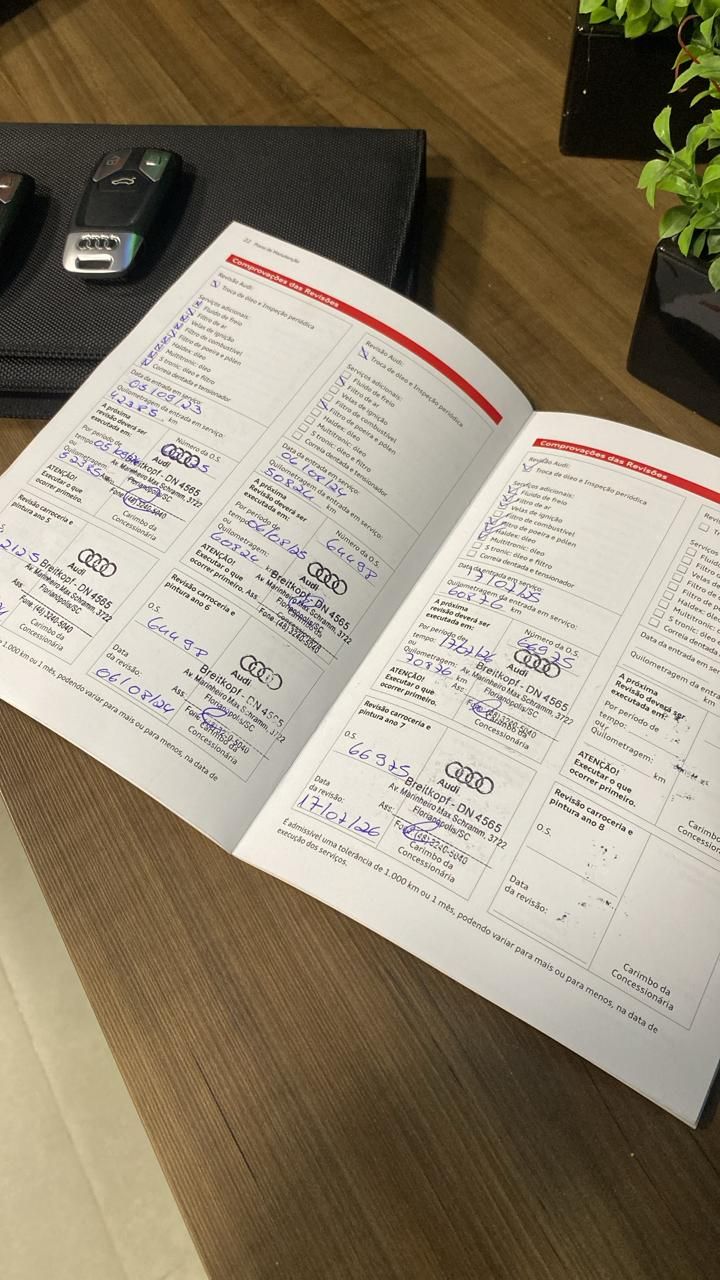 22 Plano de Manutenção
Comprovações das Revisões
Revisão Audi:
Troca de óleo e Inspeção periódica
Serviços adicionais:
Fluido de freio
Filtro de ar
Velas de ignição
Filtro de combustível
Filtro de poeira e pólen
Haldex: óleo
Multitronic: óleo
S tronic: óleo e filtro
Correia dentada e tensionador
Data da entrada em serviço:
05/09/23
Quilometragem da entrada em serviço:
42385 km
A próxima
revisão deverá ser
executada em:
Número da O.S.
Por período de
tempo:
ou
Quilometragem:
52385
ATENÇÃO!
Executar o que
ocorrer primeiro.
Audi
Breitkopf - DN 4565
Av Marinheiro Max Schramm, 3722
Florianópolis/SC
Fone (48) 3240-5040
Carimbo da
Concessionária
Revisão carroceria e
pintura ano 5
Breitkopf - DN 4565
Av Marinheiro Max Schramm, 3722
Florianópolis/SC
Ass.
Fone (48) 3240-5040
Carimbo da
Concessionária
Revisão Audi:
Troca de óleo e Inspeção periódica
Serviços adicionais:
Fluido de freio
Filtro de ar
Velas de ignição
Filtro de combustível
Filtro de poeira e pólen
Haldex: óleo
Multitronic: óleo
S tronic: óleo e filtro
Correia dentada e tensionador
Data da entrada em serviço:
06/08/24
Quilometragem da entrada em serviço:
50824 km
A próxima
Revisão deverá ser
executada em:
Número da O.S.
64498
Por período de
tempo: 06/08/25
ou
Quilometragem:
60824 km
ATENÇÃO!
Executar o que
ocorrer primeiro.
Audi
Breitkopf - DN 4565
Av Marinheiro Max Schramm, 3722
Florianópolis/SC
Fone (48) 3240-5040
Revisão carroceria e
pintura ano 6
O.S.
64498
Breitkopf - DN 4565
Av Marinheiro Max Schramm, 3722
Florianópolis/SC
Ass.
Fone (48) 3240-5040
Carimbo da
Concessionária
Data
da revisão:
06/08/24
1.000 km ou 1 mês, podendo variar para mais ou para menos, na data de
Comprovações das Revisões
Revisão Audi:
Troca de óleo e Inspeção periódica
Serviços adicionais:
Fluido de freio
Filtro de ar
Velas de ignição
Filtro de combustível
Filtro de poeira e pólen
Haldex: óleo
Multitronic: óleo
S tronic: óleo e filtro
Correia dentada e tensionador
Data da entrada em serviço:
Quilometragem da entrada em serviço:
60876 km
A próxima
revisão deverá ser
executada em:
Número da O.S.
66975
Por período de
tempo:
ou
Quilometragem:
70876 km
ATENÇÃO!
Executar o que
ocorrer primeiro.
Audi
Breitkopf - DN 4565
Av Marinheiro Max Schramm, 3722
Florianópolis/SC
Ass:
Fone (48) 3240-5040
Carimbo da
Concessionária
Revisão carroceria e
pintura ano 7
O.S.
66975
Breitkopf - DN 4565
Av Marinheiro Max Schramm, 3722
Florianópolis/SC
Fone (48) 3240-5040
Carimbo da
Concessionária
Data
da revisão:
17/07/26
A próxima
Revisão deverá ser
executada em:
Por período de
tempo:
ou
Quilometragem:
km
ATENÇÃO!
Executar o que
ocorrer primeiro.
Revisão carroceria e
pintura ano 8
O.S.
Data
da revisão:
Carimbo da
Concessionária
É admissível uma tolerância de 1.000 km ou 1 mês, podendo variar para mais ou para menos, na data de
execução dos serviços.